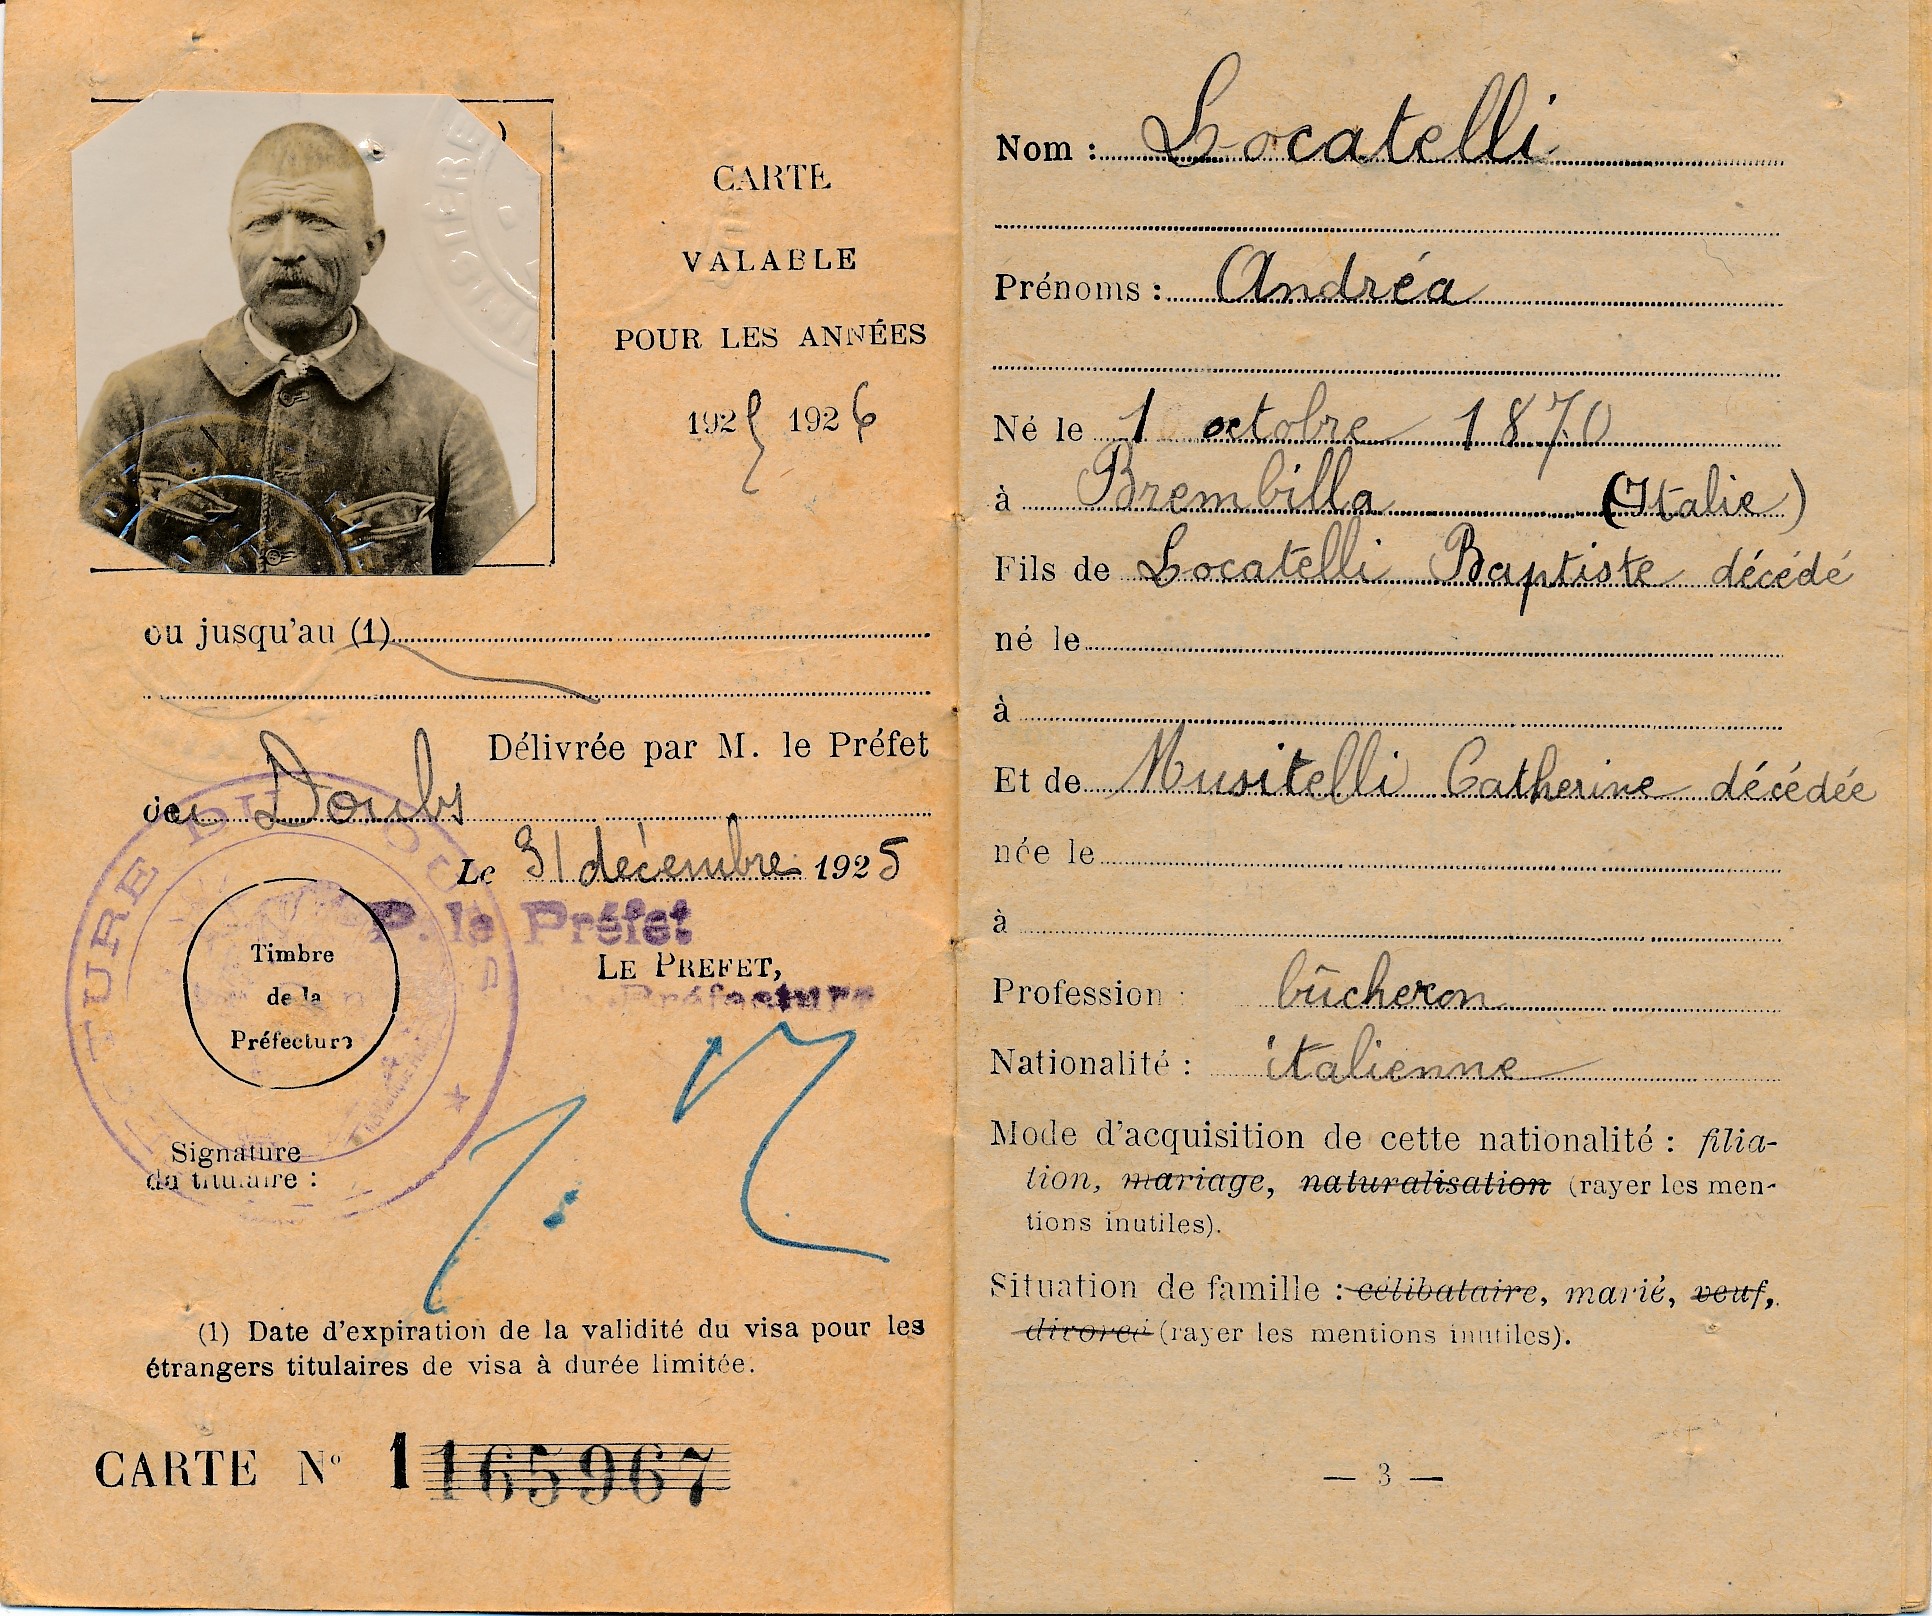 CARTE
VALABLE
POUR LES ANNÉES
1925 1926
ou jusqu'au (1)
Délivrée par M. le Préfet
du Doubs
Le 31 décembre 1925
P. le Préfet
LE PREFET,
Préfecture
Timbre
de la
Préfecture
Signature
du titulaire :
(1) Date d'expiration de la validité du visa pour les
étrangers titulaires de visa à durée limitée.
CARTE N° 1165967
Nom : Locatelli
Prénoms : Andréa
Né le 1 octobre 1870
à Brembilla (Italie)
Fils de Locatelli Baptiste décédé
né le
à
Et de Musitelli Catherine décédée
née le
à
Profession : bûcheron
Nationalité : italienne
Mode d'acquisition de cette nationalité : filia-
tion, mariage, naturalisation (rayer les men-
tions inutiles).
Situation de famille : célibataire, marié, veuf,
divorcé (rayer les mentions inutiles).
— 3 —